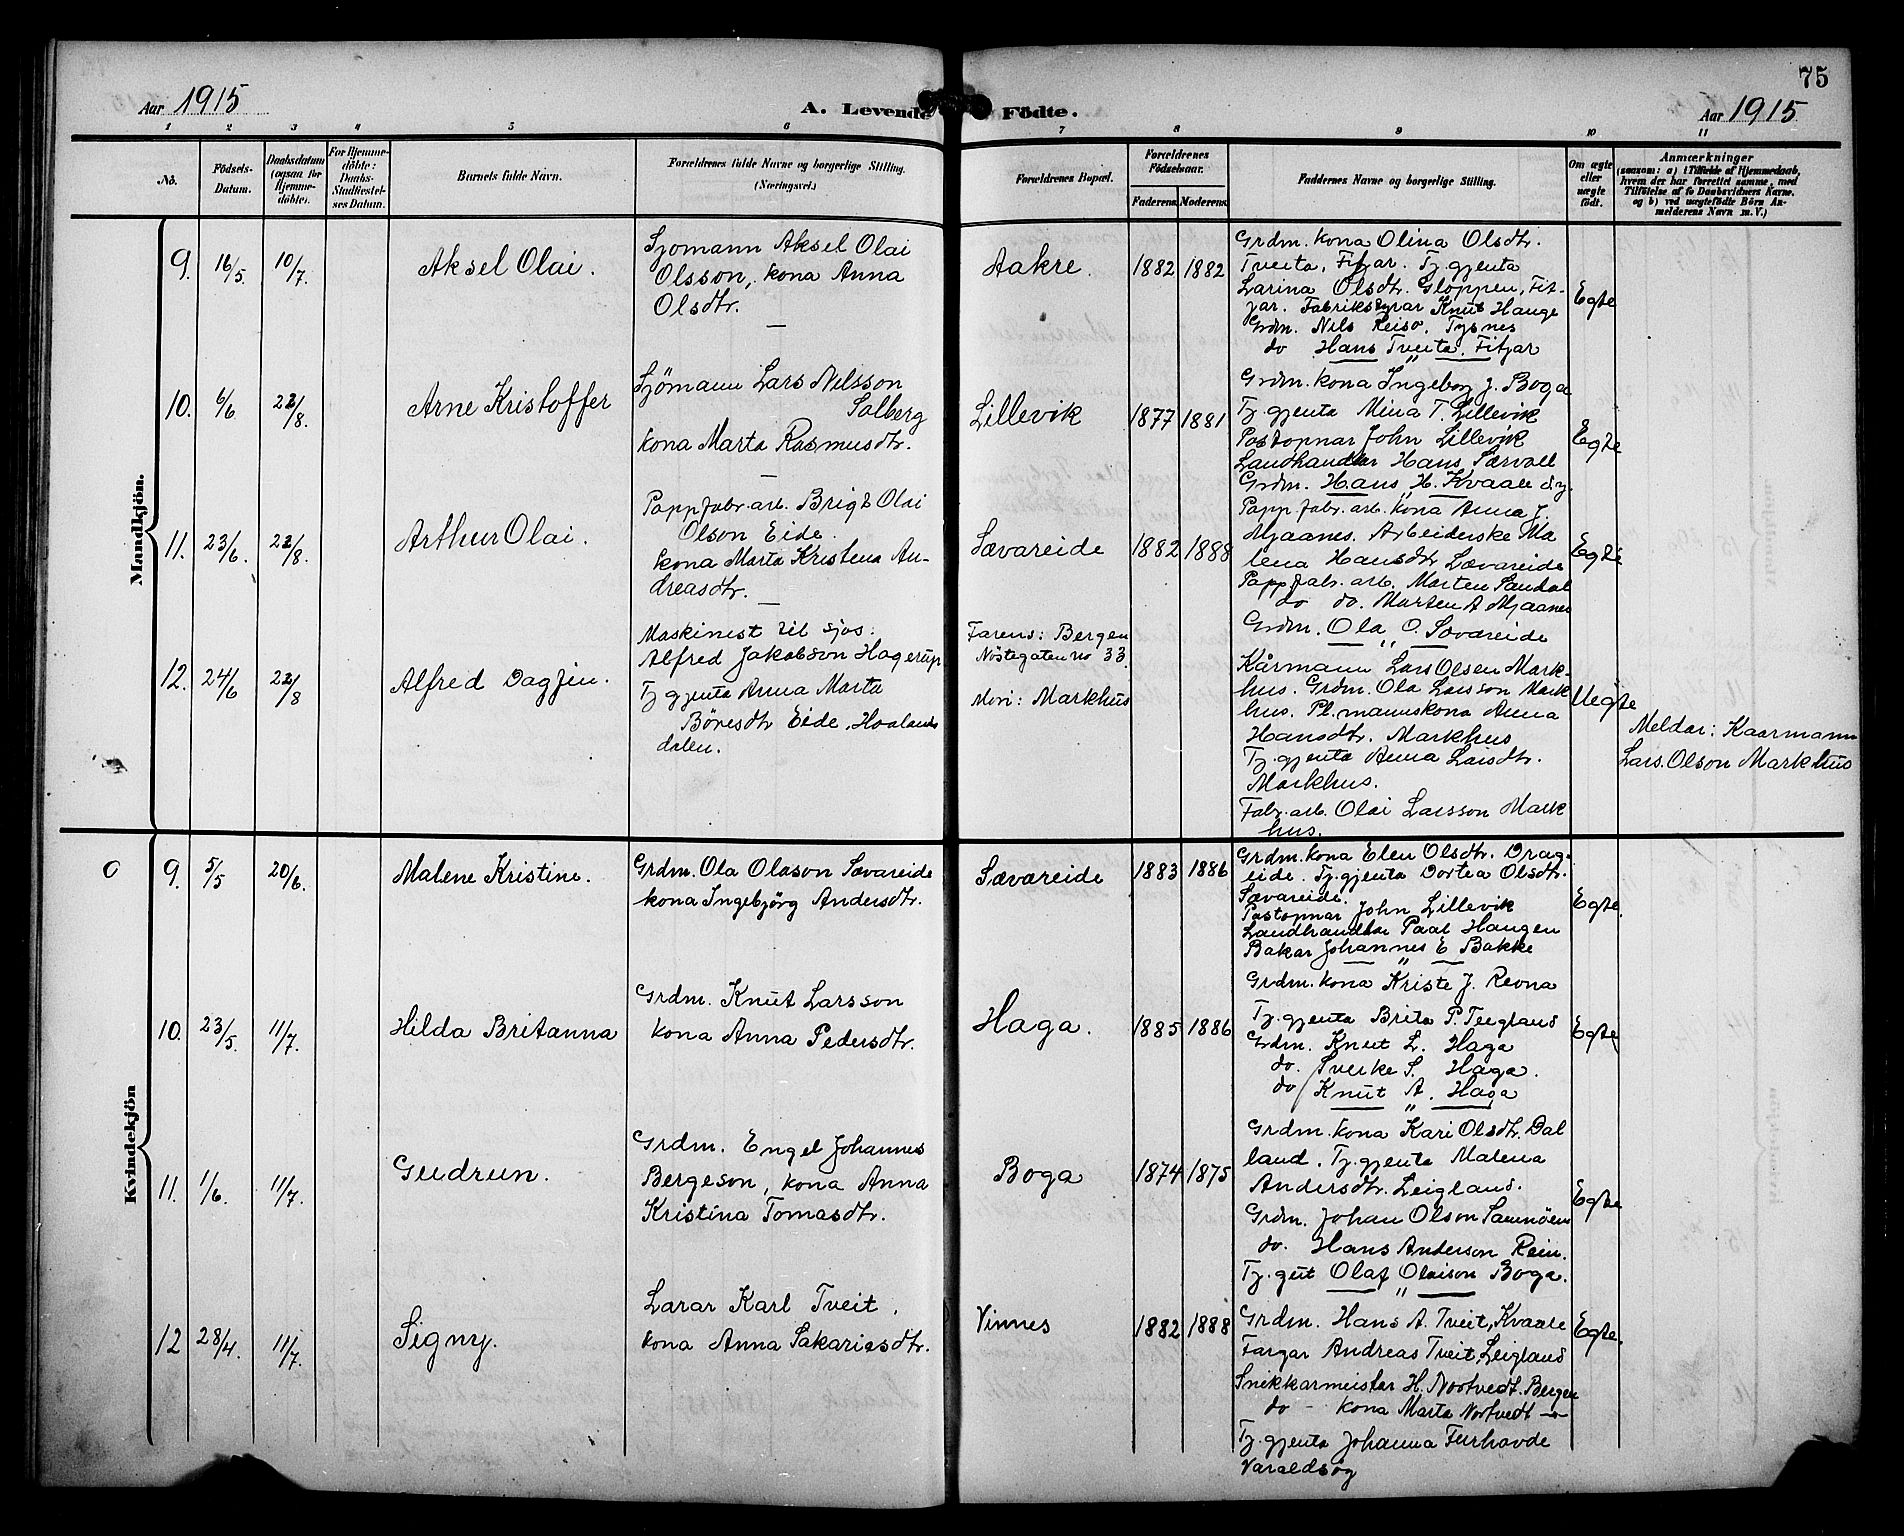 75
Aar 1915
A. Levende Födte.
Aar 1915
1 2 3 4 5 6 7 8 9 10 11
No.
Födsels-
Datum.
Daabsdatum
(ogsaa for
Hjemme-
döbte).
For Hjemme-
döbte:
Daabs-
Stadfæstel-
ses Datum.
Barnets fulde Navn.
Forældrenes fulde Navne og borgerlige Stilling.
(Næringsvei.)
Forældrenes Bopæl.
Forældrenes
Födselsaar.
Faderens. Moderens.
Faddernes Navne og borgerlige Stilling.
Om ægte
eller
uægte
födt.
Anmærkninger
(saasom: a) i Tilfælde af Hjemmedaab,
hvem der har forrettet samme, med
Tilföielse af to Daabsvidners Navne,
og b) ved uægtefödte Börn An-
melderens Navn m. V.)
Mandkjön.
9. 16/5. 10/7. Aksel Olai.
Sjomann Aksel Olai
Olsson, kona Anna
Olsdtr.
Aakre. 1882 1882
Grdm. kona Olina Olsdtr.
Tveita, Fitjar. Tj. gjenta
Larina Olsdtr. Gloppen, Fit-
jar. Fabrikstyrar Knut Hauge
Grdm. Nils Reiso, Tysnes
do Hans Tveita, Fitjar
Egte
10. 6/6 22/8. Arne Kristoffer
Sjömann Lars Nilsson
Solberg
kona Marta Rasmusdtr.
Lillevik 1877 1881
Grdm. kona Ingeborg J. Boga
Tj. gjenta Mina T. Lillevik
Postopnar John Lillevik
Landhandlar Hans Særvoll
Grdm. Hans H. Kvaale
Egte
11. 23/6. 22/8. Arthur Olai.
Papp fabr. arb. Brigt Olai
Olson Eide.
kona Marta Kristena An-
dreasdtr.
Sævareide 1882 1888
Papp fabr. arb. kona Anna J.
Mjaanes. Arbeiderske Ma
lena Hansdtr Sævareide
Papp fabr. arb. Marten Sandal
do do. Marten A Mjaanes
Grdm. Ola O. Sævareide
Egte
12. 24/6 22/8 Alfred Dagfin.
Maskinist til sjøs:
Alfred Jakobson Hagerup
Tj gjenta Anna Marta
Böresdtr Eide, Haalands
dalen.
Farens: Bergen
Nöstegaten no 33.
Mori: Markhus
Kårmann Lars Olsen Mark-
hus. Grdm. Ola Larsson Mark
hus. Pl. mannskona Anna
Hansdtr. Markhus
Tj. gjenta Anna Larsdtr.
Markhus.
Fabr. arb. Olai Larsson Mark
hus.
Uegte
Meldar: Kaarmann
Lars. Olson Markhus
Kvindekjön
0 9. 5/5 20/6. Malene Kristine.
Grdm. Ola Olason Sævareide
kona Ingebjörg Andersdtr.
Sævareide 1883 1886
Grdm. kona Elen Olsdtr. Drage
eide. Tj. gjenta Dortea Olsdtr.
Sævareide.
Postopnar John Lillevik
Landhandlar Paal Haugen
Bakar Johannes E Bakke
Egte.
10. 23/5. 11/7. Hilda Britanna
Grdm. Knut Larsson
kona Anna Pedersdtr.
Haga. 1885 1886
Grdm. kona Kriste J. Revna
Tj. gjenta Brita P. Teigland
Grdm. Knut L. Haga
do. Sverke S. Haga.
do Knut A. Haga
Egte
11. 1/6. 11/7. Gudrun.
Grdm. Engel Johannes
Bergeson, kona Anna
Kristina Tomasdtr.
Boga 1874 1875
Grdm. kona Kari Olsdtr. Dal
land. Tj. gjenta Malena
Andersdtr. Leigland.
Grdm. Johan Olson
do. Hans Anderson Rein.
Tj. gut Olaf Olaison Boga.
Egte
12 28/4. 11/7. Signy.
Lærar Karl Tveit,
kona Anna Sakariasdtr.
Vinnes 1882 1888
Grdm. Hans A. Tveit, Kvaale
Fargar Andreas Tveit, Leigland
Snikkarmeistar H. Nortvedt. Bergen
do - kona Marta Nortvedt -"-
Tj. gjenta Johanna Furhovde
Varaldsøy
Egte.